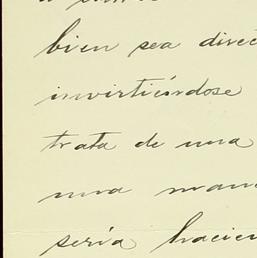 bien sea direc
invirtiéndose
trata de una
una man
sería hacien